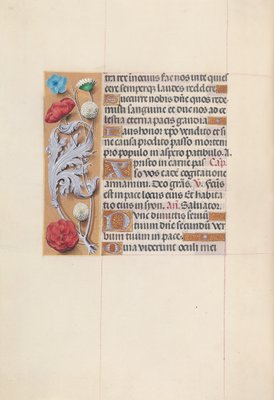 tra rex in cuius fac nos in te quies
cere semperq; laudes reddere
Q uesumus nobis dñe quos rede
misti sanguine et duc nos ad ce
lestia eterna pacis gaudia
L aus honor xpo vendito et si
ne causa prodito passo mortem
pro populo in aspero patibulo. A
X pristo in carne pas Cap.
so vos eadẽ cogitatione
armamini. Deo grãs. V. factꝰ
est in pace locus eius Et habita
tio eius in syon. An. Saluator.
N unc dimittis seruũ
tuum dñe secundũ ver
bum tuum in pace
Q uia viderunt oculi mei